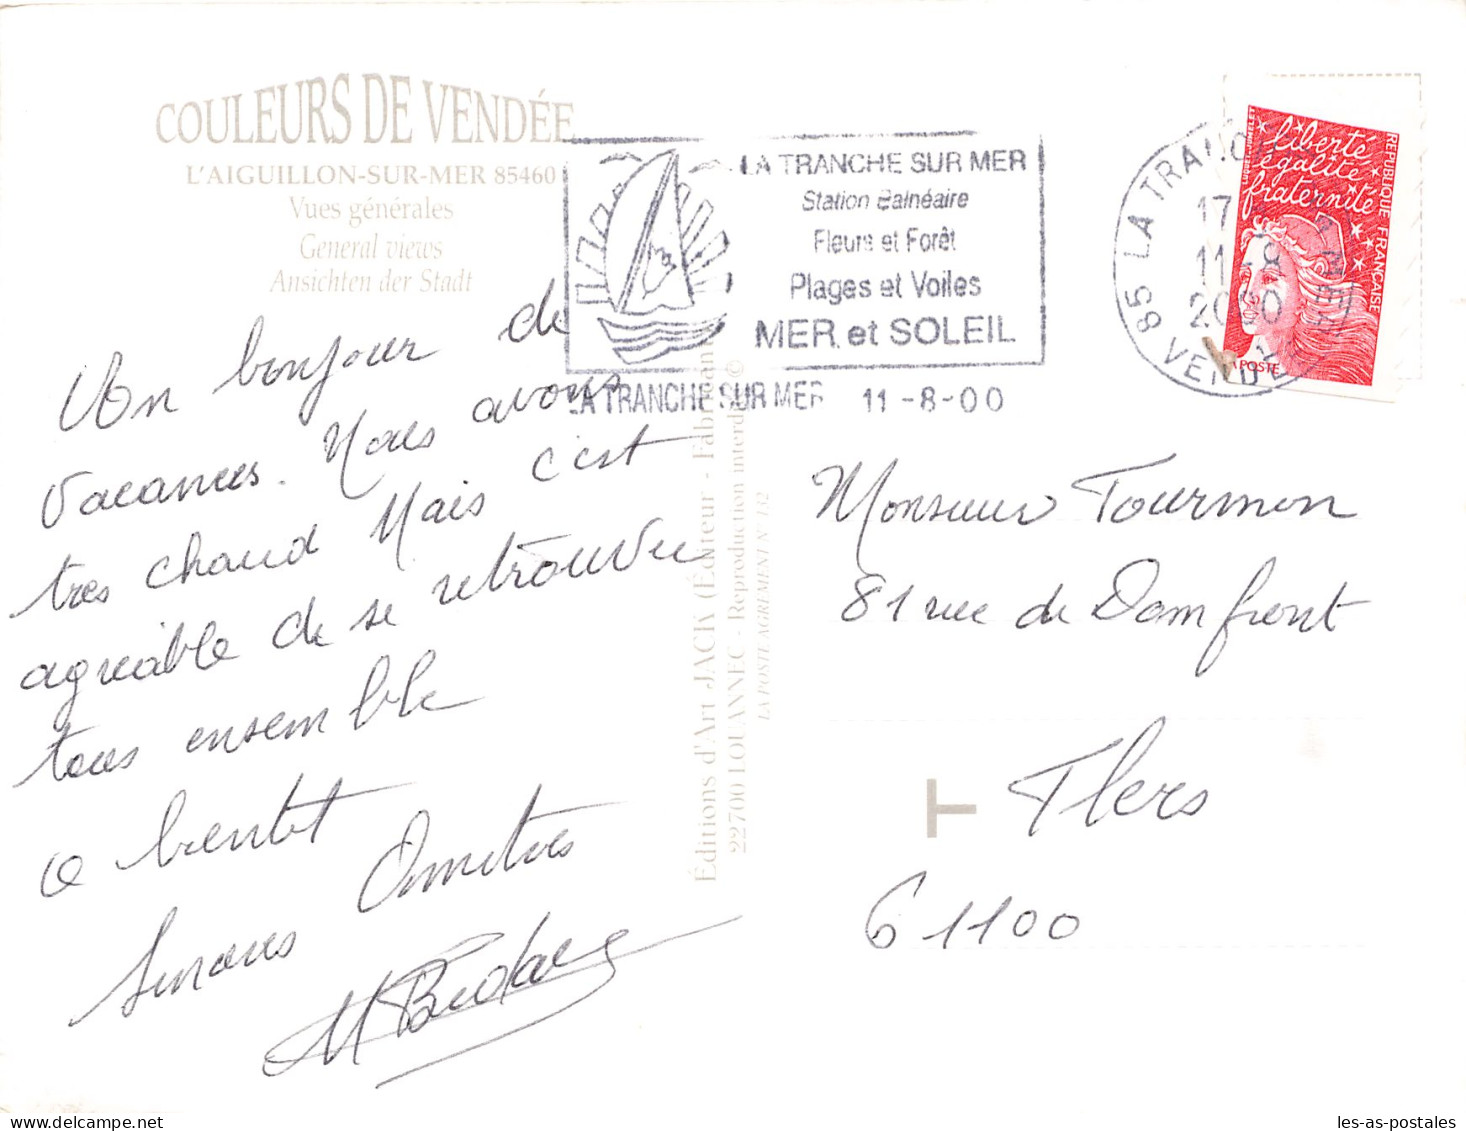 COULEURS DE VENDÉE
L'AIGUILLON-SUR-MER 85460
Vues générales
General views
Ansichten der Stadt
LA TRANCHE SUR MER
Station Balnéaire
Fleurs et Forêt
Plages et Voiles
MER et SOLEIL
LA TRANCHE SUR MER 11-8-00
85 LA TRANC
MER
VENDEE
17
11 -8
2000
liberté
égalité
fraternité
REPUBLIQUE FRANÇAISE
LA POSTE
Un bonjour de
vacances. Nous avons
tres chaud Mais c'est
agréable de se retrouver
tous ensemble
a bientot
Amities
Éditions d'Art JACK (Éditeur - Fabricant)
22700 LOUANNEC - Reproduction interdite ©
LA POSTE AGREMENT N° 132
Monsieur Tourmon
81 rue de Domfront
T
Flers
61100
les-as-postales